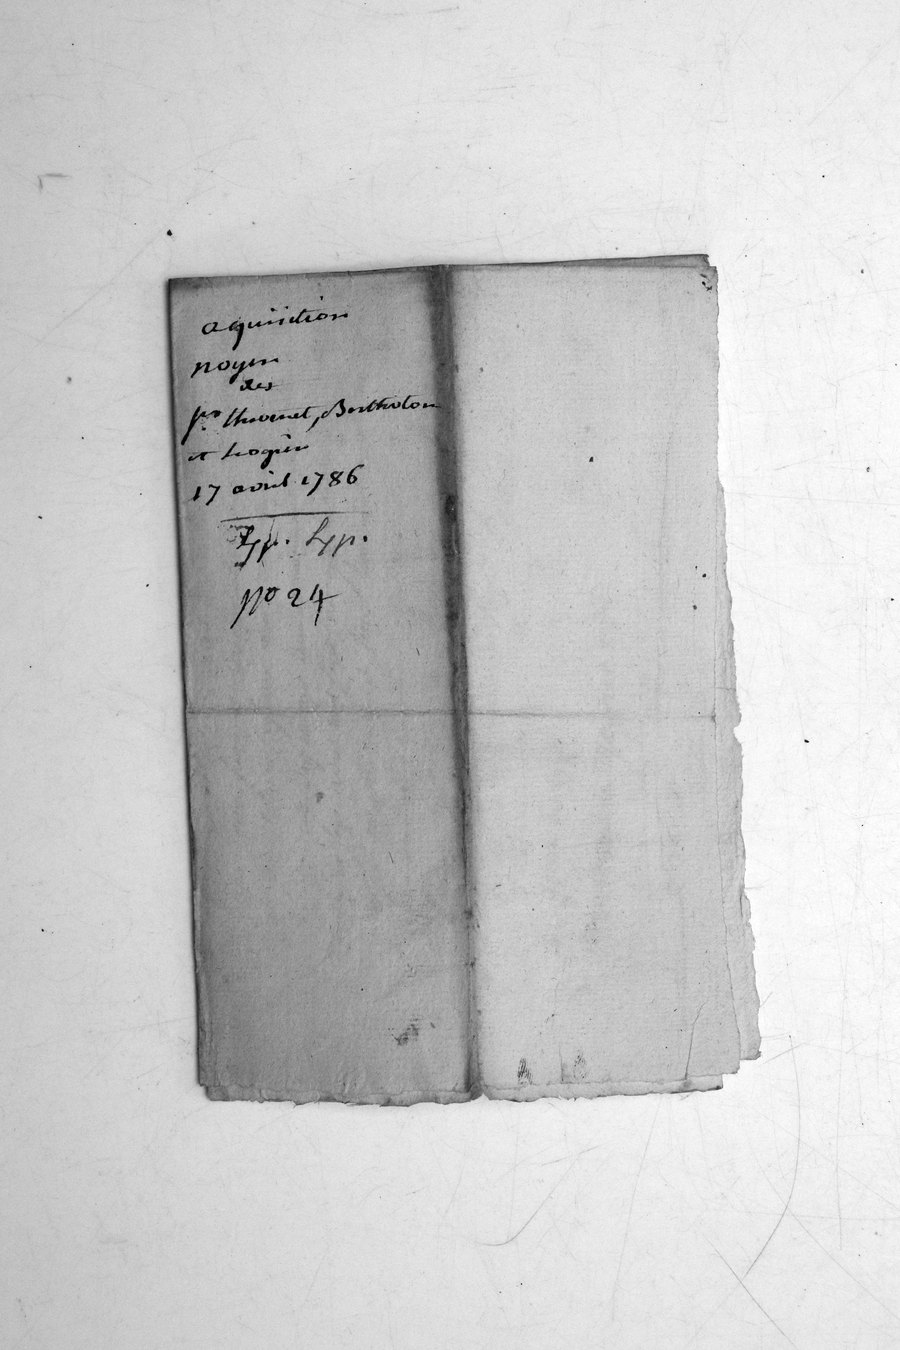 aquisition
noyer
des
Srs thvenet, Bertholon
et hogier
17 avril 1786
Hyp. Hyp.
no 24